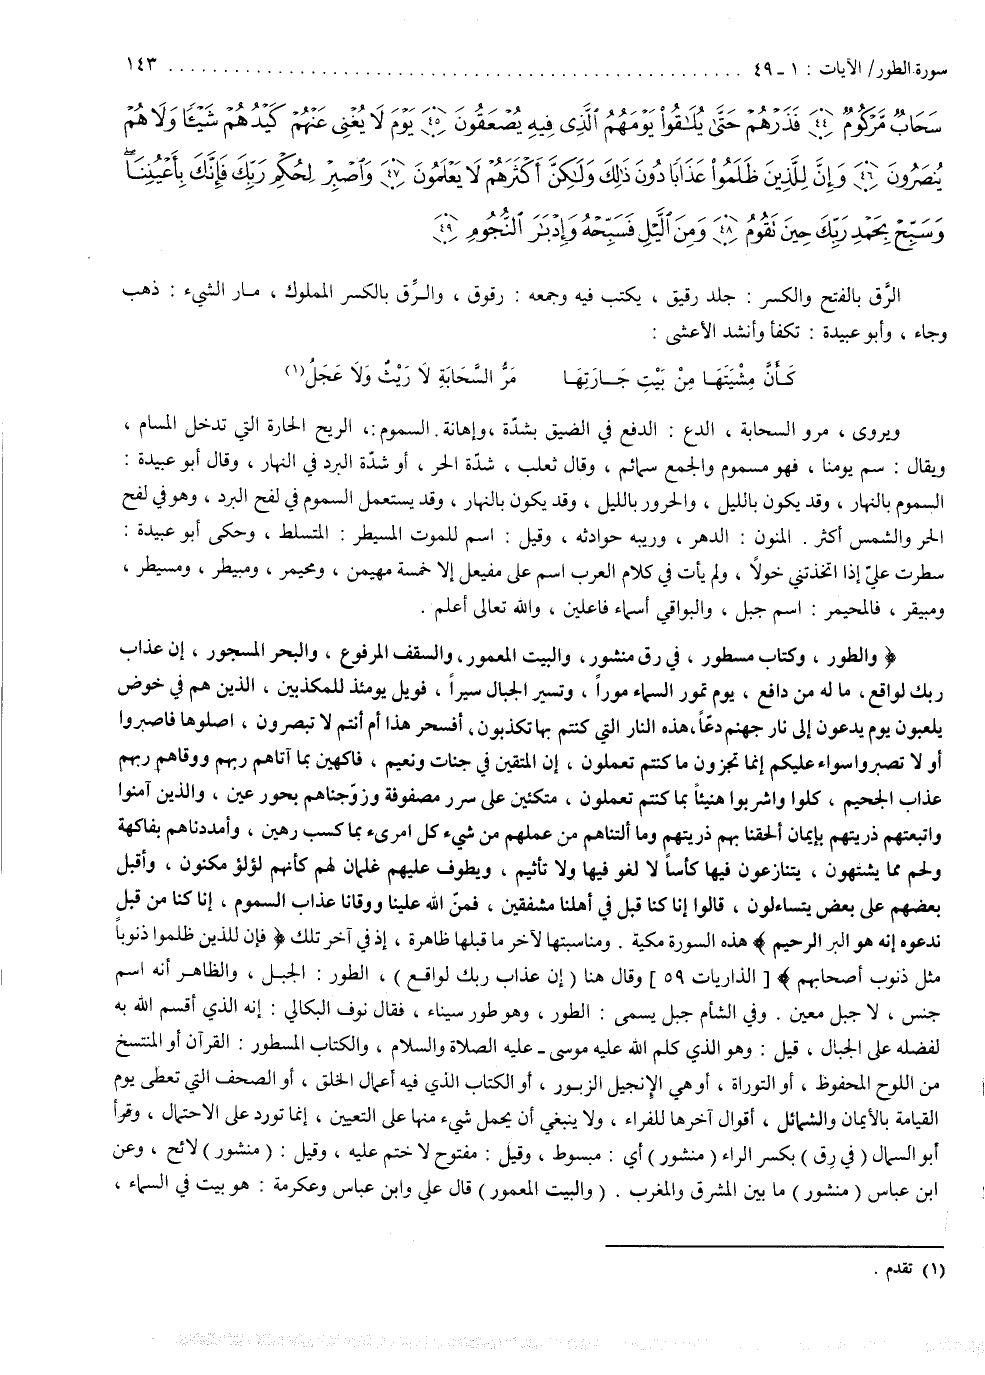 سورة الطور / الآيات : ١ - ٤٩ ........................................................ ١٤٣
سَحَابٌ مَّرْكُومٌ ﴿٤٤﴾ فَذَرْهُمْ حَتَّىٰ يُلَـٰقُواْ يَوْمَهُمُ ٱلَّذِى فِيهِ يُصْعَقُونَ ﴿٤٥﴾ يَوْمَ لَا يُغْنِى عَنْهُمْ كَيْدُهُمْ شَيْـًٔا وَلَا هُمْ
يُنصَرُونَ ﴿٤٦﴾ وَإِنَّ لِلَّذِينَ ظَلَمُواْ عَذَابًا دُونَ ذَٰلِكَ وَلَـٰكِنَّ أَكْثَرَهُمْ لَا يَعْلَمُونَ ﴿٤٧﴾ وَٱصْبِرْ لِحُكْمِ رَبِّكَ فَإِنَّكَ بِأَعْيُنِنَا ۖ
وَسَبِّحْ بِحَمْدِ رَبِّكَ حِينَ تَقُومُ ﴿٤٨﴾ وَمِنَ ٱلَّيْلِ فَسَبِّحْهُ وَإِدْبَـٰرَ ٱلنُّجُومِ ﴿٤٩﴾
الرَّق بالفتح والكسر : جلد رقيق ، يكتب فيه وجمعه : رقوق ، والرِّق بالكسر المملوك ، مار الشيء : ذهب
وجاء ، وأبو عبيدة : تكفأ وأنشد الأعشى :
كَأَنَّ مِشْيَتَهَا مِنْ بَيْتِ جَارَتِهَا مَرُّ السَّحَابَةِ لَا رَيْثٌ وَلَا عَجَلُ(١)
ويروى ، مرو السحابة ، الدع : الدفع في الضيق بشدّة ،وإهانة . السموم :، الريح الحارة التي تدخل المسام ،
ويقال : سم يومنا ، فهو مسموم والجمع سمائم ، وقال ثعلب ، شدّة الحر ، أو شدّة البرد في النهار ، وقال أبو عبيدة :
السموم بالنهار ، وقد يكون بالليل ، والحرور بالليل ، وقد يكون بالنهار ، وقد يستعمل السموم في لفح البرد ، وهو في لفح
الحر والشمس أكثر . المنون : الدهر ، وريبه حوادثه ، وقيل : اسم للموت المسيطر : المتسلط ، وحكى أبو عبيدة :
سطرت عليّ إذا اتخذتني خولاً ، ولم يأت في كلام العرب اسم على مفيعل إلا خمسة مهيمن ، ومحيمر ، ومبيطر ، ومسيطر ،
ومبيقر ، فالمحيمر : اسم جبل ، والبواقي أسماء فاعلين ، والله تعالى أعلم .
﴿ والطور ، وكتاب مسطور ، في رق منشور، والبيت المعمور، والسقف المرفوع ، والبحر المسجور ، إن عذاب
ربك لواقع، ما له من دافع ، يوم تمور السماء موراً ، وتسير الجبال سيراً ، فويل يومئذ للمكذبين ، الذين هم في خوض
يلعبون يوم يدعون إلى نار جهنم دعّاً،هذه النار التي كنتم بها تكذبون، أفسحر هذا أم أنتم لا تبصرون ، اصلوها فاصبروا
أو لا تصبرواسواء عليكم إنما تجزون ما كنتم تعملون ، إن المتقين في جنات ونعيم ، فاكهين بما آتاهم ربهم ووقاهم ربهم
عذاب الجحيم ، كلوا واشربوا هنيئاً بما كنتم تعملون ، متكئين على سرر مصفوفة وزوّجناهم بحور عين ، والذين آمنوا
واتبعتهم ذريتهم بإيمان ألحقنا بهم ذريتهم وما ألتناهم من عملهم من شيء كل امرىء بما كسب رهين ، وأمددناهم بفاكهة
ولحم مما يشتهون ، يتنازعون فيها كأساً لا لغو فيها ولا تأثيم ، ويطوف عليهم غلمان لهم كأنهم لؤلؤ مكنون ، وأقبل
بعضهم على بعض يتساءلون ، قالوا إنا كنا قبل في أهلنا مشفقين ، فمنّ الله علينا ووقانا عذاب السموم ، إنا كنا من قبل
ندعوه إنه هو البر الرحيم ﴾ هذه السورة مكية . ومناسبتها لآخر ما قبلها ظاهرة ، إذ في آخر تلك ﴿ فإن للذين ظلموا ذنوباً
مثل ذنوب أصحابهم ﴾ [ الذاريات ٥٩ ] وقال هنا ( إن عذاب ربك لواقع ) ، الطور : الجبل ، والظاهر أنه اسم
جنس ، لا جبل معين . وفي الشأم جبل يسمى : الطور ، وهو طور سيناء ، فقال نوف البكالي : إنه الذي أقسم الله به
لفضله على الجبال ، قيل : وهو الذي كلم الله عليه موسى - عليه الصلاة والسلام ، والكتاب المسطور : القرآن أو المنتسخ
من اللوح المحفوظ ، أو التوراة ، أو هي الإنجيل الزبور ، أو الكتاب الذي فيه أعمال الخلق ، أو الصحف التي تعطى يوم
القيامة بالأيمان والشمائل ، أقوال آخرها للفراء ، ولا ينبغي أن يحمل شيء منها على التعيين ، إنما تورد على الاحتمال ، وقرأ
أبو السمال ( في رِق ) بكسر الراء ( منشور ) أي : مبسوط ، وقيل : مفتوح لا ختم عليه ، وقيل : ( منشور ) لائح ، وعن
ابن عباس ( منشور ) ما بين المشرق والمغرب . ( والبيت المعمور ) قال علي وابن عباس وعكرمة : هو بيت في السماء ،
(١) تقدم .